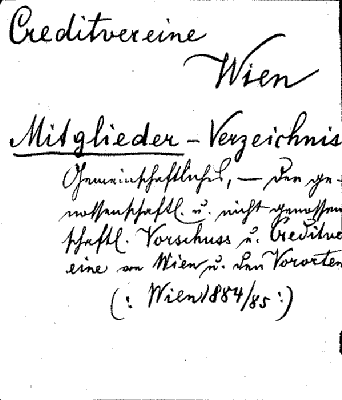 Creditvereine
Wien
Mitglieder - Verzeichnis
Gemeinschaftliches, — den ge-
nossenschaftl. u. nicht genossen
schaftl. Vorschuss u. Creditve
eine von Wien u. den Vororten
(: Wien 1884/85 :)